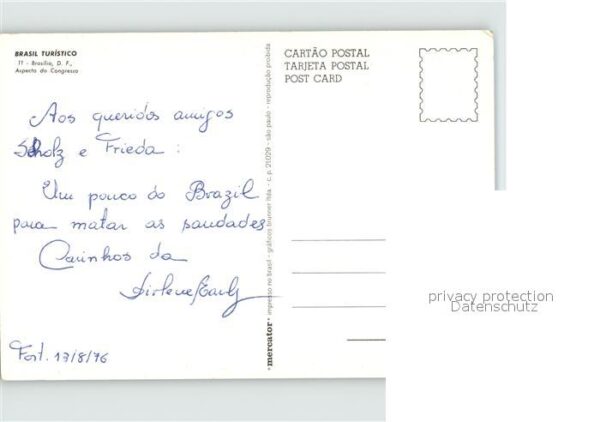 BRASIL TURÍSTICO
11 - Brasília, D. F.,
Aspecto do Congresso
Aos queridos amigos
Scholz e Frieda :
Um pouco do Brazil
para matar as saudades
Carinhos da
Fort. 17/8/76
mercator® impresso no brasil - gráficos brunner ltda. - c. p. 21029 - são paulo - reprodução proibida
CARTÃO POSTAL
TARJETA POSTAL
POST CARD
privacy protection
Datenschutz